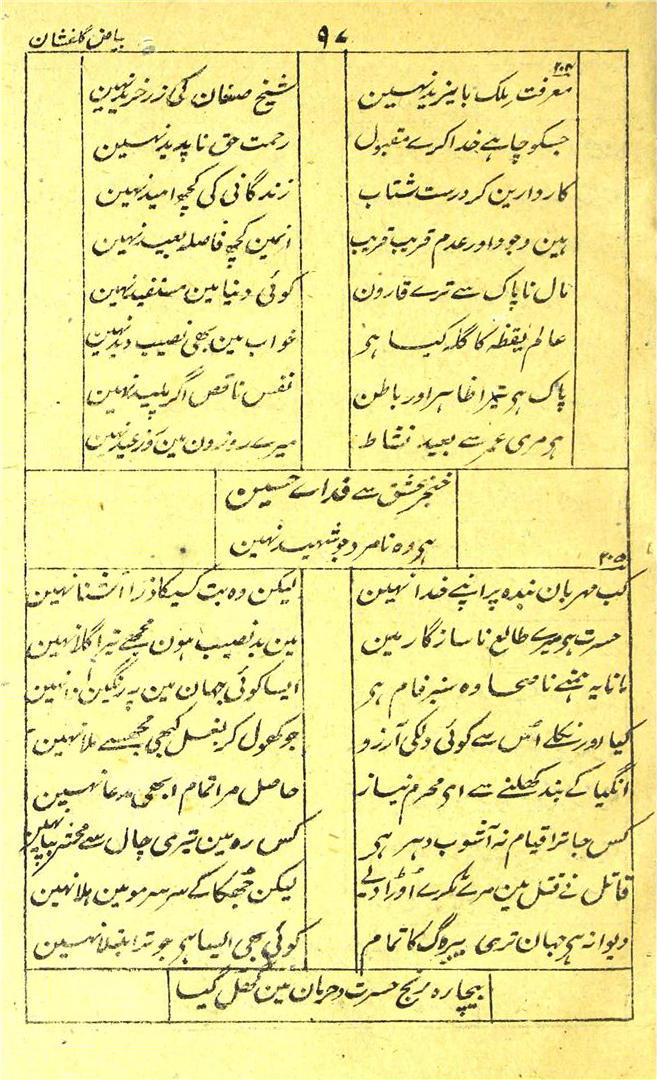 بیاض گلفشان
۹۷
۲۰۴
معرفت ملک بایزید نہین
شیخ صنعان کی زر خرید نہین
جسکو چاہے خدا کرے مقبول
رحمت حق ناپدید نہین
کار دارین کر درست شتاب
زندگانی کی کچھ امید نہین
ہین وجود اور عدم قریب قریب
انمین کچھ فاصلہ بعید نہین
مال ناپاک سے ترے قارون
کوئی دنیا مین مستفید نہین
عالم یقظہ کا گلہ کیا ہی
خواب مین بھی نصیب دید نہین
پاک ہی تیرا ظاہر اور باطن
نفس ناقص اگر پلید نہین
ہی مری عمر سے بعید نشاط
میرے روزون مین روز عید نہین
خنجر عشق سے فداے حسین
ہی وہ نامرد جو شہید نہین
۲۰۵
کب مہربان بندہ پر اپنے خدا نہین
لیکن وہ بت کسیکا ذرا آشنا نہین
حسرت ہی میرے طالع ناسازگار مین
مین بد نصیب ہون مجھے تیرا گلا نہین
مانا یہ ہمنے ناصحا وہ سبز فام ہی
ایسا کوئی جہان مین پر رنگین ادا نہین
کیا اور نکلے اُس سے کوئی دلکی آرزو
جو کھول کر بغل کبھی مجھسے ملا نہین
انگیا کے بند کھلنے سے ای محرم نیاز
حاصل مرا تمام ابھی مدعا نہین
کس جا ترا قیام نہ آشوب دہر ہی
کس رہ مین تیری چال سے محشر بپا نہین
قاتل نے قتل مین مرے ٹکرے اُوڑا دیے
لیکن جُھکا کے سر سر مو مین ہلا نہین
دیوانہ ہی جہان تری نیرنگ کا تمام
کوئی بھی ایسا ہی جو ترا مبتلا نہین
بیچارہ رنج حسرت و حرمان مین گھل گیا